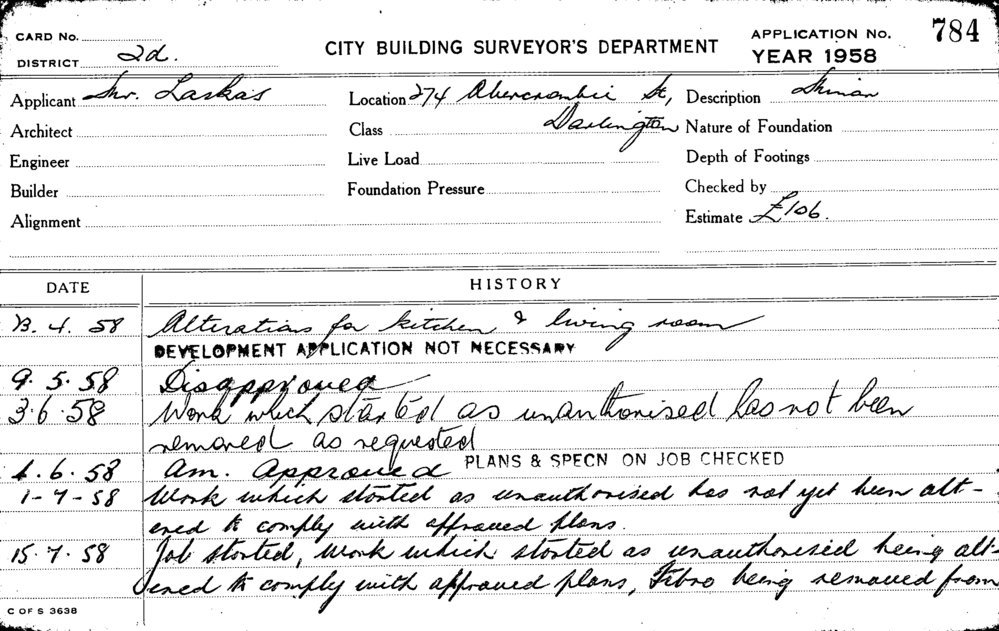 CARD No.
DISTRICT 2d.
CITY BUILDING SURVEYOR'S DEPARTMENT
APPLICATION No. 784
YEAR 1958
Applicant Mr. Laskas
Location 274 Abercrombie St,
Description
Architect
Class Darlington
Nature of Foundation
Engineer
Live Load
Depth of Footings
Builder
Foundation Pressure
Checked by
Alignment
Estimate £106.
DATE HISTORY
4. 58 Alterations for kitchen & living room
DEVELOPMENT APPLICATION NOT NECESSARY
9. 5. 58 Disapproved
3. 6. 58 Work which started as unauthorised has not been
removed as requested
6. 58 Am. Approved PLANS & SPECN ON JOB CHECKED
1-7-58 Work which started as unauthorised has not yet been alt-
ered to comply with approved plans.
15. 7. 58 Job started, work which started as unauthorised being alt-
ered to comply with approved plans, Fibro being removed from
C OF S 3638